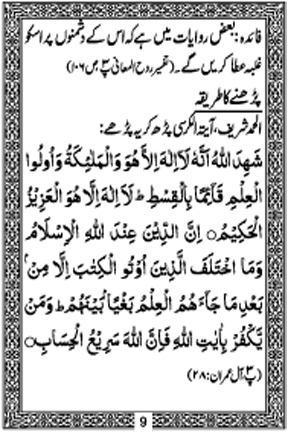 فائدہ: بعض روایات میں ہے کہ اس کے دشمنوں پر اسکو
غلبہ عطا کریں گے۔ (تفسیر روح المعانی پ۳ ص ۱۰۶)
پڑھنے کا طریقہ
الحمد شریف، آیتہ الکرسی پڑھ کر یہ پڑھے:
شَهِدَ اللّٰهُ اَنَّهٗ لَآ اِلٰهَ اِلَّا هُوَ وَالْمَلٰٓئِكَةُ وَاُولُوا
الْعِلْمِ قَآئِمًۢا بِالْقِسْطِ ؕ لَآ اِلٰهَ اِلَّا هُوَ الْعَزِيْزُ
الْحَكِيْمُ ○ اِنَّ الدِّيْنَ عِنْدَ اللّٰهِ الْاِسْلَامُ
وَمَا اخْتَلَفَ الَّذِيْنَ اُوْتُو الْكِتٰبَ اِلَّا مِنْۢ
بَعْدِ مَا جَآءَهُمُ الْعِلْمُ بَغْيًاۢ بَيْنَهُمْ ؕ وَمَنْ
يَّكْفُرْ بِاٰيٰتِ اللّٰهِ فَاِنَّ اللّٰهَ سَرِيْعُ الْحِسَابِ ○
(پ۳ آل عمران: ۲۸)
9